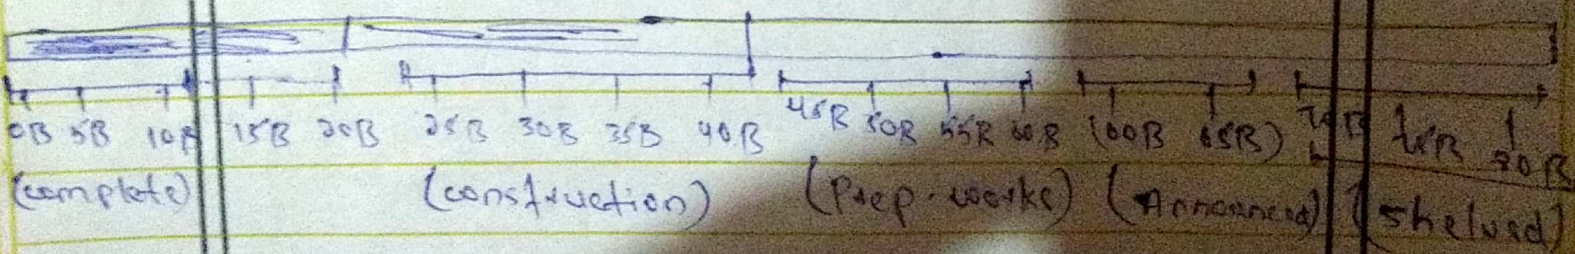 0B 5B 10B 15B 20B 25B 30B 35B 40B 45B 50B 55B 60B 65B) 70B 75B 80B
(complete) (construction) (Prep-works) (Announced) (Shelved)